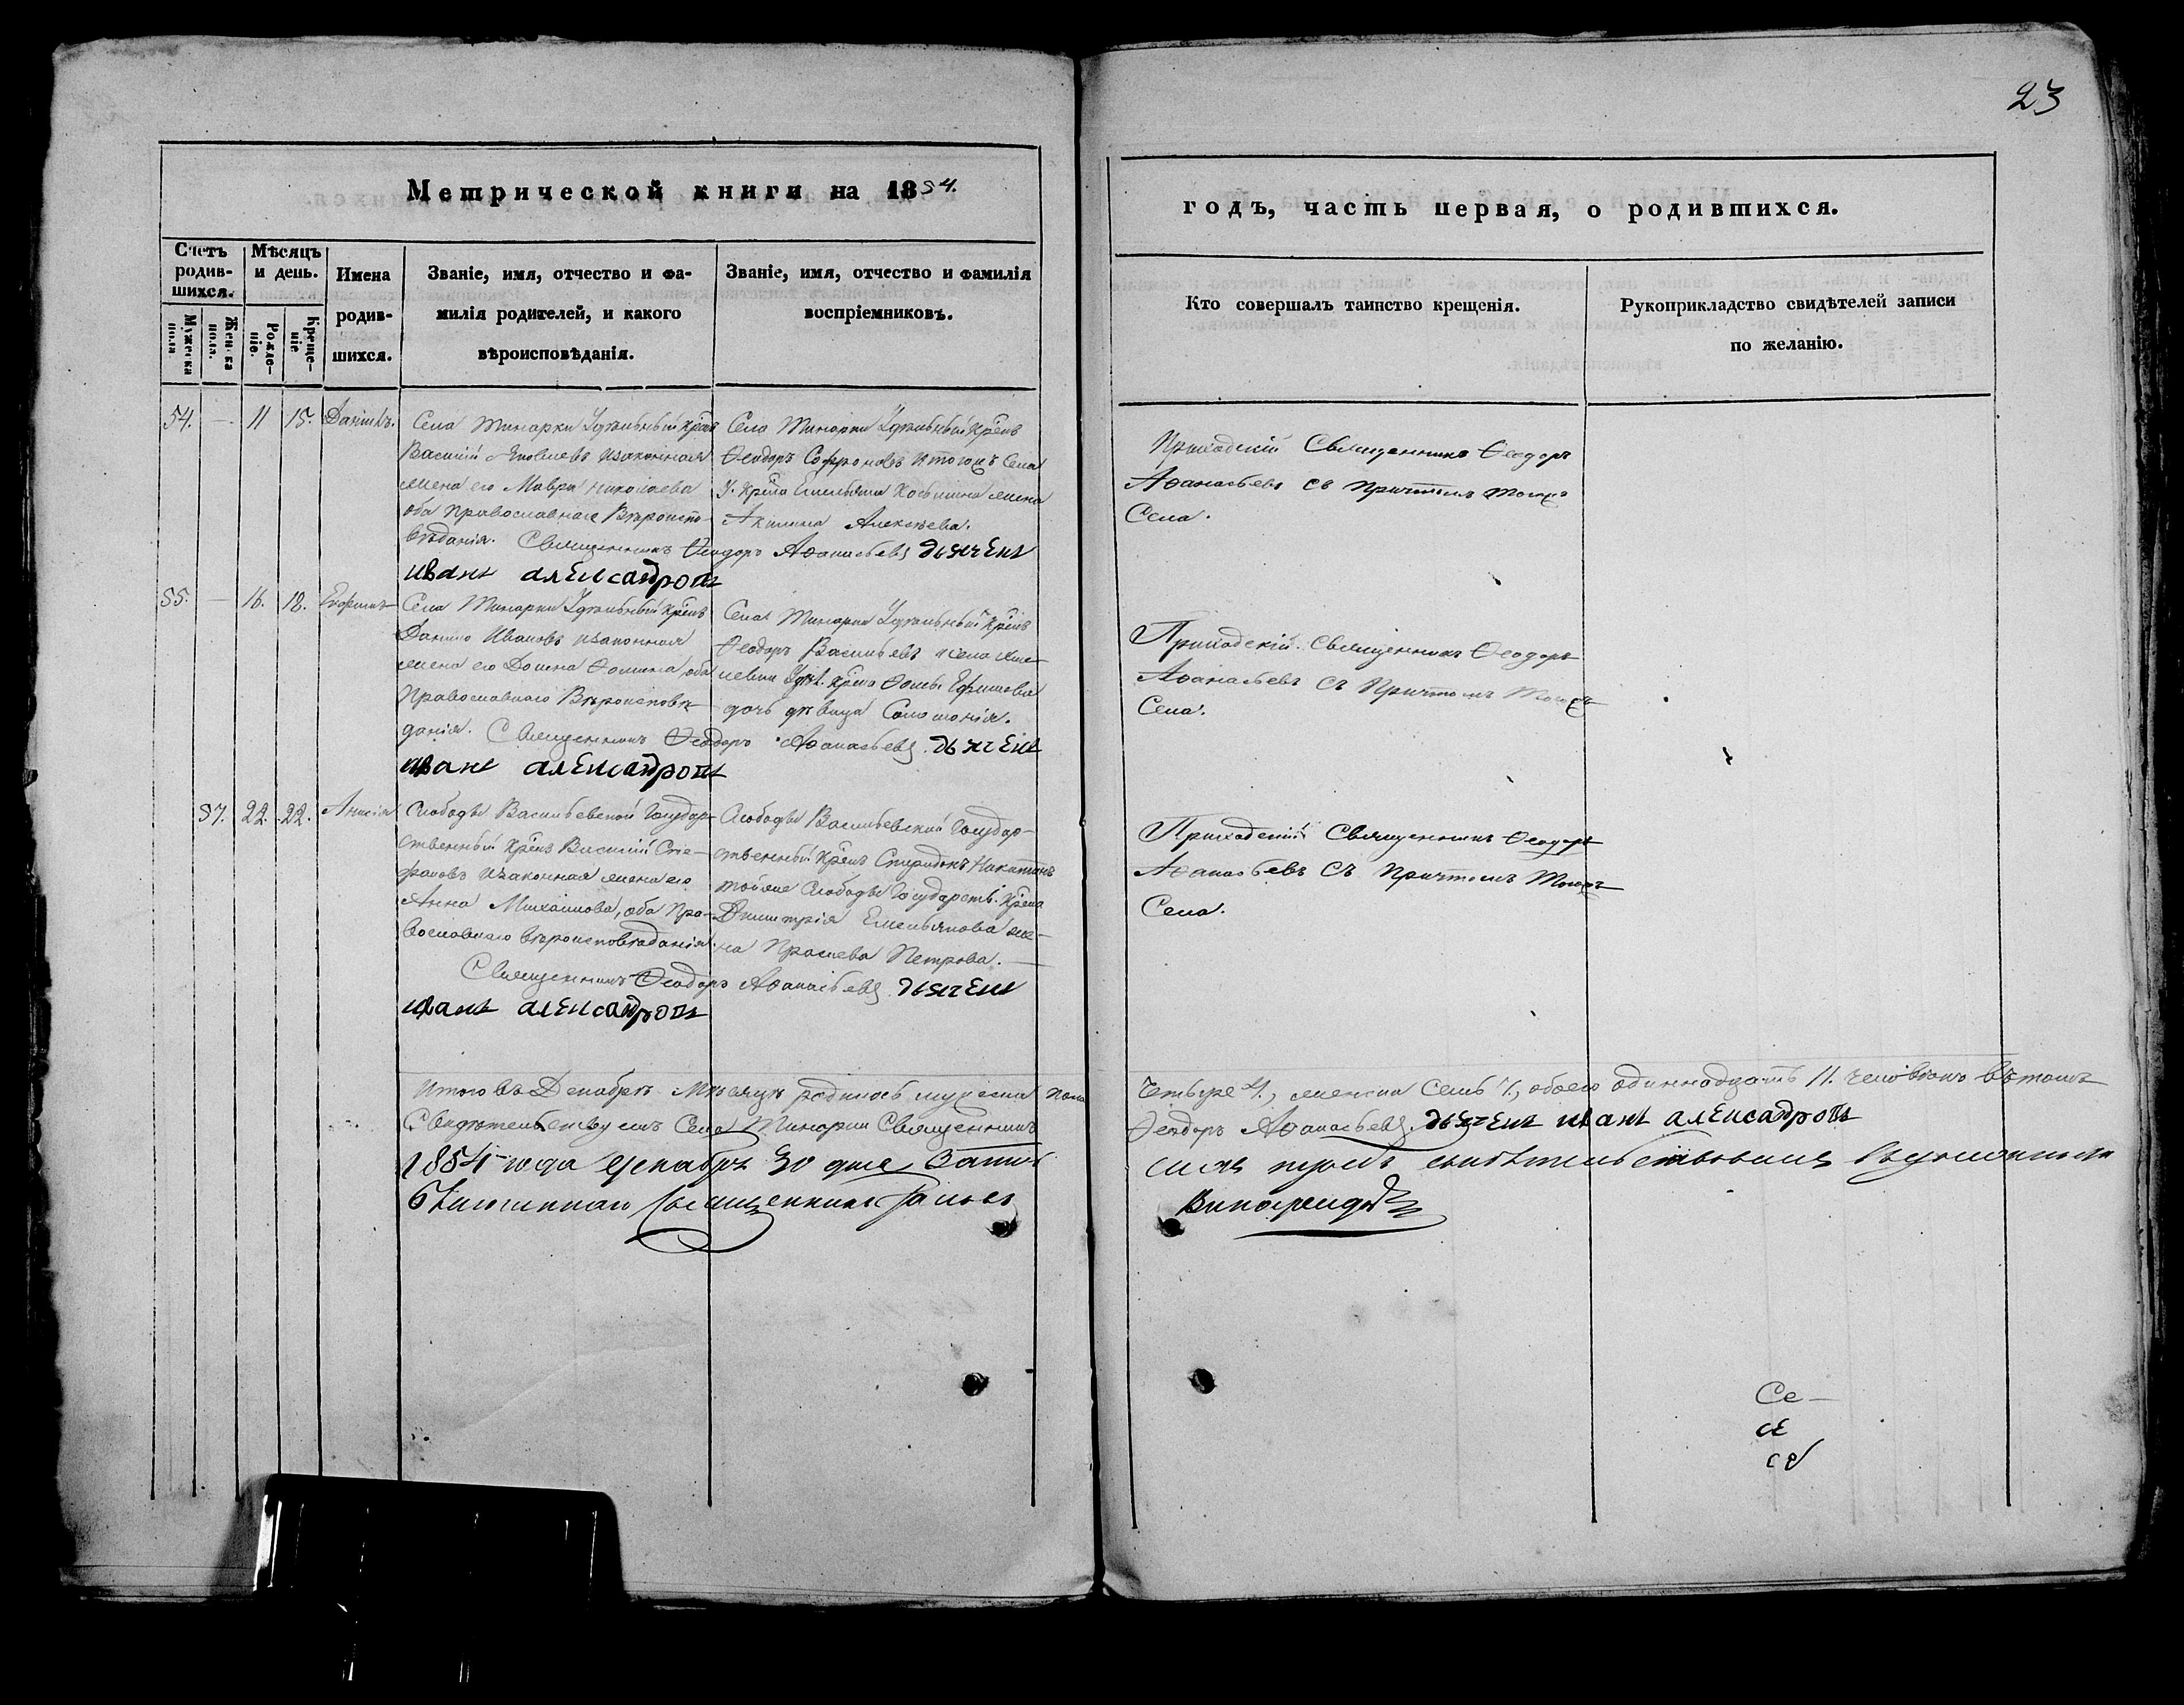 23
Метрической книги на 1854.
годъ, часть первая, о родившихся.
Счетъ родив-шихся.
Мѣсяцъ и день.
Имена родив-шихся.
Званіе, имя, отчество и фа-
милія родителей, и какого
вѣроисповѣданія.
Званіе, имя, отчество и фамилія
воспріемниковъ.
Кто совершалъ таинство крещенія.
Рукоприкладство свидѣтелей записи
по желанію.
Мужеска пола
Женска пола.
Рожде-ніе.
Креще-ніе
54. — 11 15. Даніилъ.
Села Тинарки Удѣльный крѣнъ
Василій Яковлевъ изаконная
жена его Мавра Николаева
оба Православнаго Вѣроиспо-
вѣданія. Священникъ Ѳеодоръ Аѳанасьевъ дьячекъ
иванъ александровъ
Села Тинарки Удѣльный крѣнъ
Ѳеодоръ Софроновъ итогожъ Села
У. крѣна Емельяна Косьмина жена
Акилина Алексѣева.
Приходскій Священникъ Ѳеодоръ
Аѳанасьевъ съ Причтомъ тогожъ
Села.
55. — 16. 18. Евфимъ
Села Тинарки Удѣльный крѣнъ
Данило Ивановъ изаконная
жена его Домна Ѳомина, оба
Православнаго Вѣроисповѣ-
данія. Священникъ Ѳеодоръ Аѳанасьевъ. дьячекъ
иванъ александровъ
Села Тинарки Удѣльный крѣнъ
Ѳеодоръ Васильевъ и села
Удѣл. крѣна Ѳомы Ефимова
дочь дѣвица Соломонія.
Приходскій Священникъ Ѳеодоръ
Аѳанасьевъ съ Причтомъ тогожъ
Села.
57. 22. 22. Анисія
Слободы Васильевской Государ-
ственный крѣнъ Василій Сте-
фановъ изаконная жена его
Анна Михайлова, оба Пра-
вославнаго вѣроисповѣданія.
Священникъ Ѳеодоръ Аѳанасьевъ. дьячекъ
иванъ александровъ
Слободы Васильевской Государ-
ственный крѣнъ Спиридонъ Никитинъ
тойже Слободы Государств. крѣна
Димитрія Емельянова же-
на Праскева Петрова.
Приходскій Священникъ Ѳеодоръ
Аѳанасьевъ съ Причтомъ тогожъ
Села.
Итого въ Декабрѣ Мѣсяцѣ родилось мужеска пола четыре 4., женска семь 7., обоего одиннадцать 11. человѣкъ. въ томъ
Свидѣтельствуемъ Села Тинарки Священникъ Ѳеодоръ Аѳанасьевъ. дьячекъ иванъ александровъ
1854 года Декабря 30 дня
Священникъ
Се—
се
се